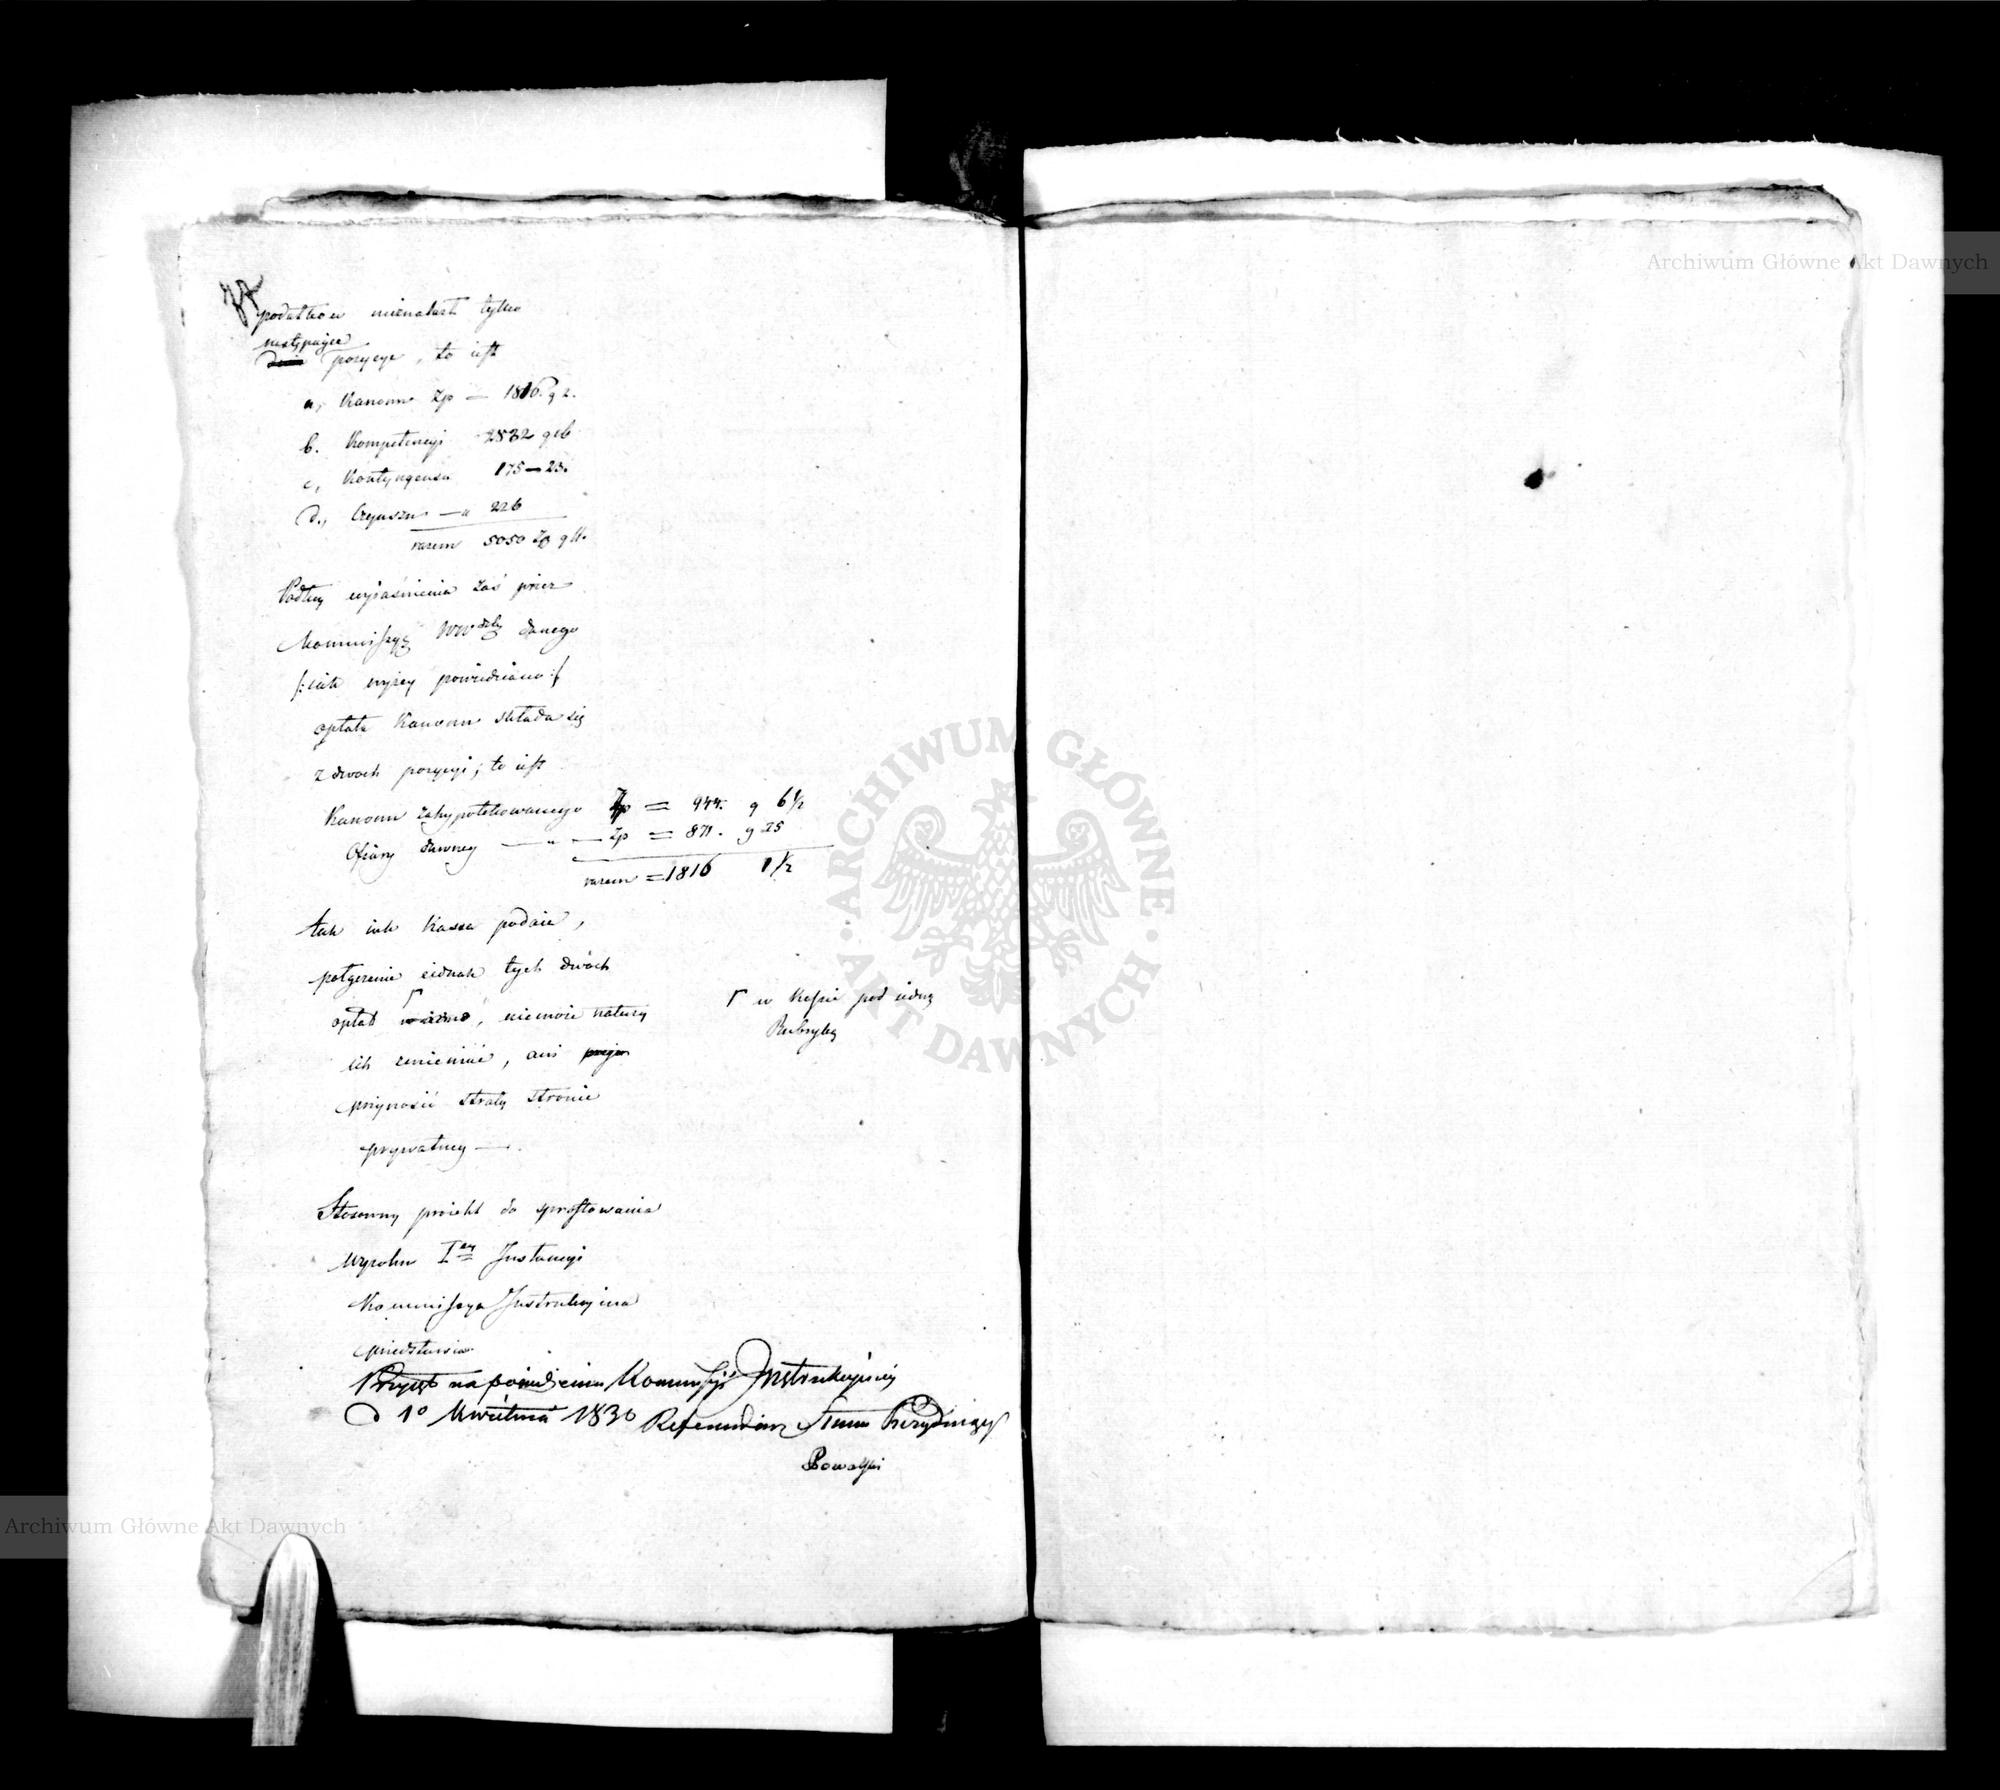 podatków nieznalazł tylko
następujące
pozycye, to iest
a, Kanonu Zp — 1816. g 2.
b. Kompetencyi 2832 g 16
c, Kontyngensu 175 — 23.
d., Czynszu — „ 226
razem 5050 Zp g 11.
Podług wyiaśnienia zaś przez
Kommissyą WWdzką danego
/: iak wyżey powiedziano :/
opłata Kanonu składa się
z dwoch pozycyi; to iest
Kanonu zahypotekowanego Zp = 944. g 6 ½
Ofiary dawney — „ — Zp = 871. g 25
razem = 1816 1 ½
tak iak Kassa podaie,
połączenie iednak tych dwóch
opłat, niemoże natury
ich zmieniać, ani
przynosić straty stronie
prywatney —.
Γ w Kassie pod iedną
Rubryką
Stosowny proiekt do sprostowania
wyroku Iey Instancyi
Kommissya Instrukcyina
przedstawia
Przyięto na posiedzeniu Kommissyi Instrukcyiney
d 1o Kwietnia 1830 Referendarz Stanu Prezyduiący
Archiwum Główne Akt Dawnych
Archiwum Główne Akt Dawnych
· ARCHIWUM GŁÓWNE · AKT DAWNYCH